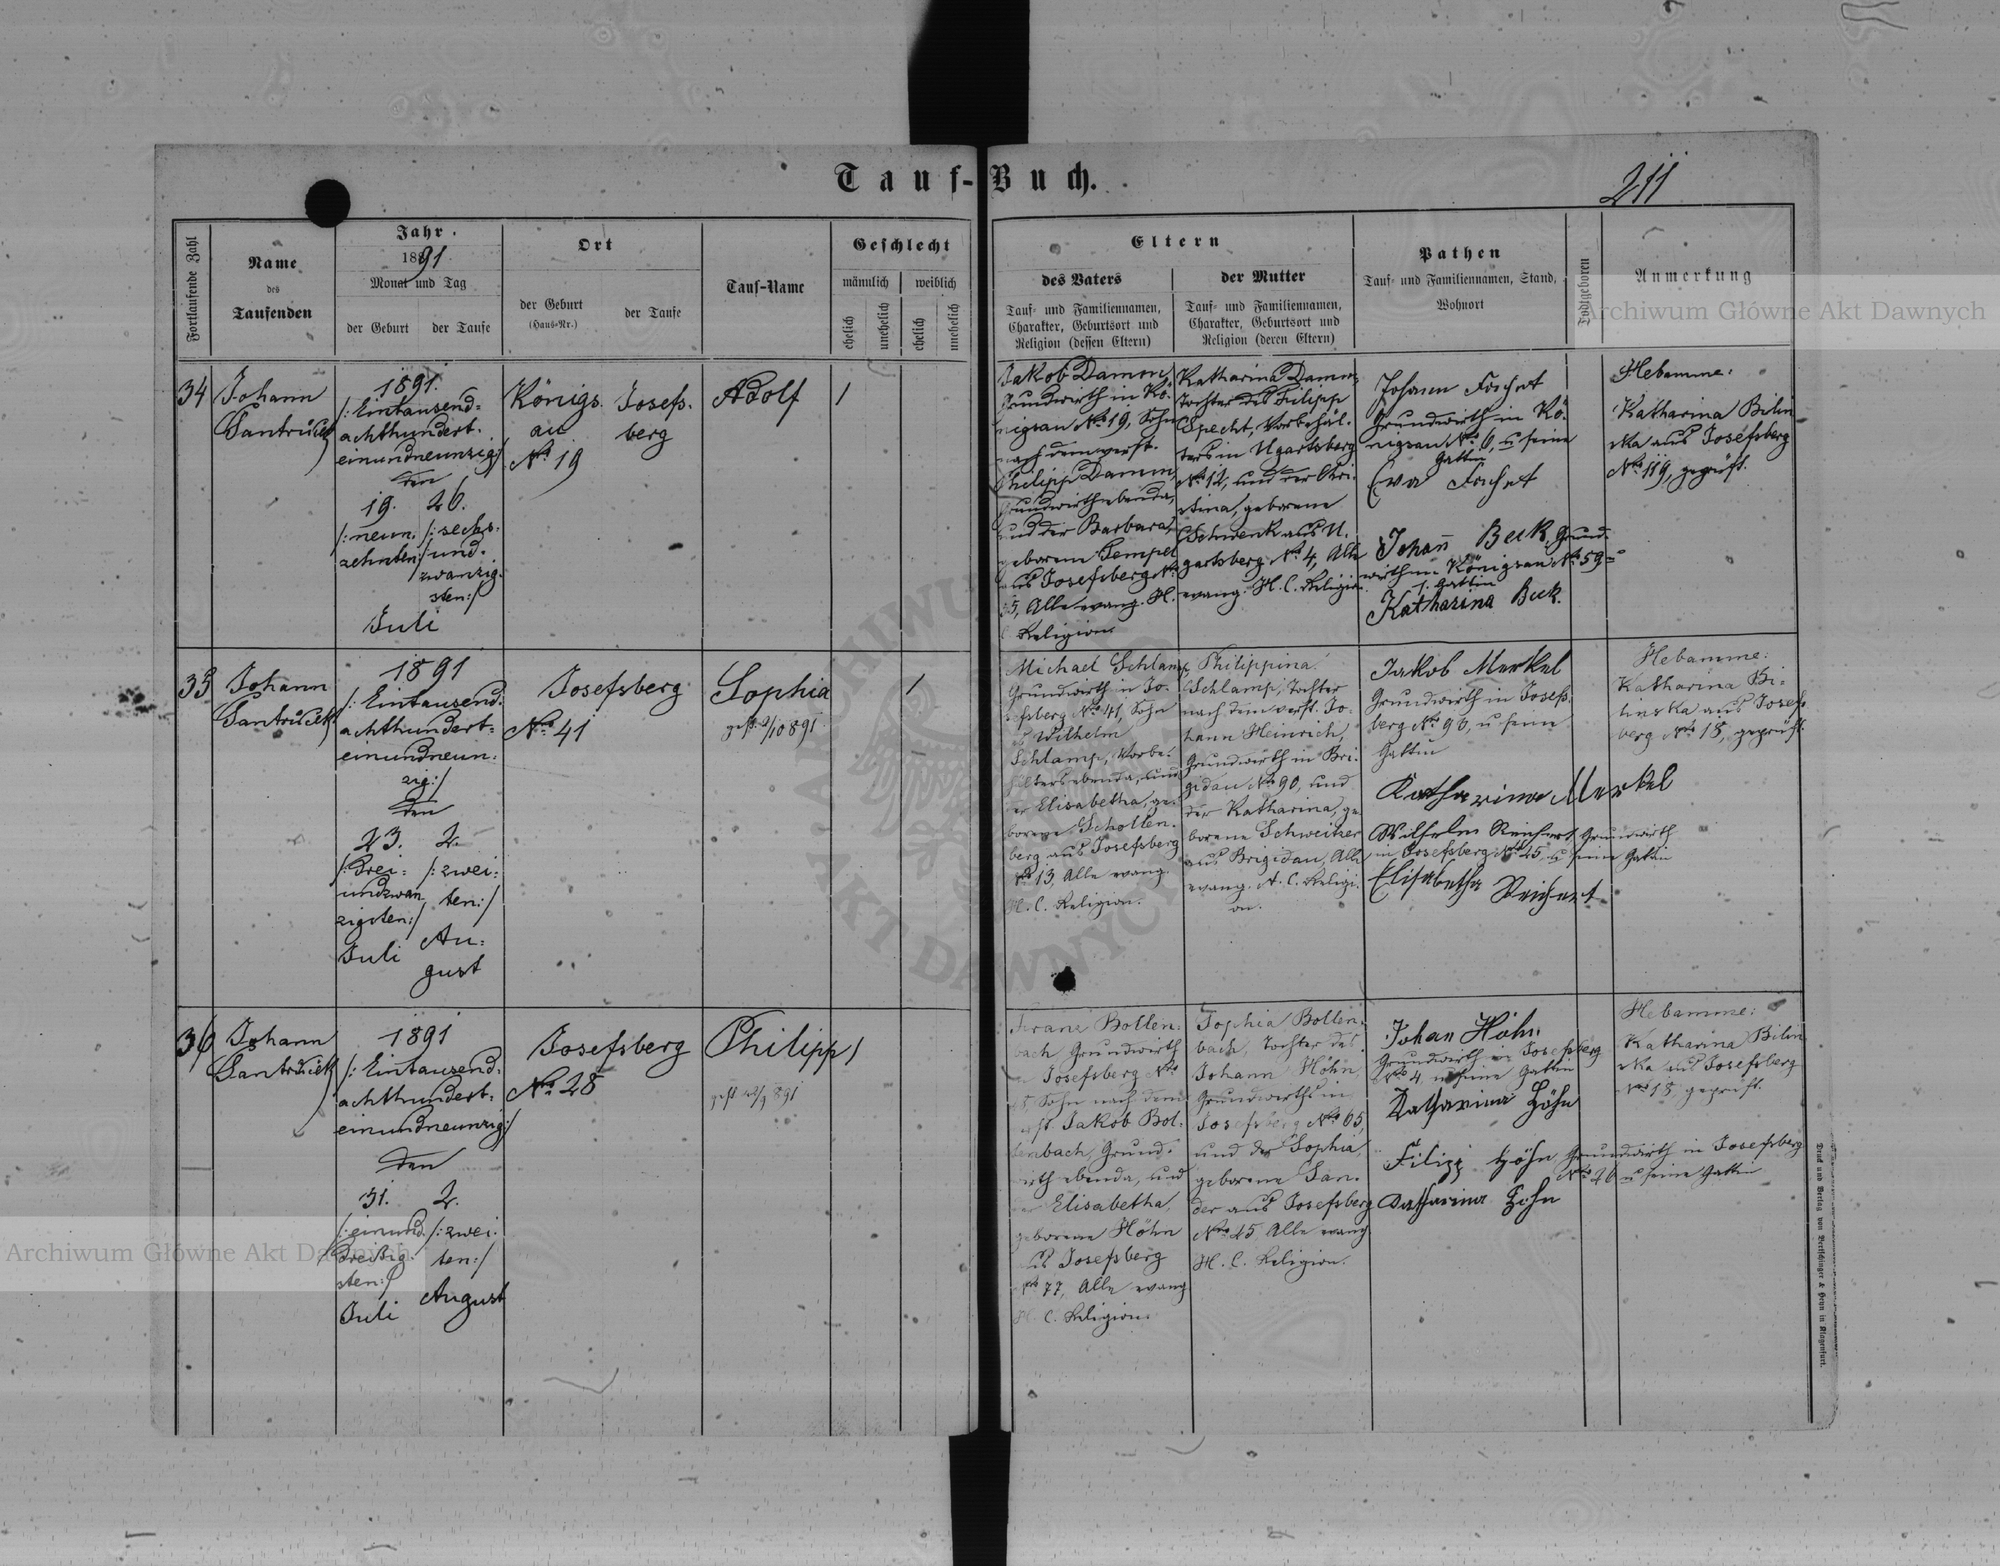 Tauf-Buch.
211
Fortlaufende Zahl
Name
des
Taufenden
Jahr.
1891
Monat und Tag
der Geburt
der Taufe
Ort
der Geburt
(Haus-Nr.)
der Taufe
Tauf-Name
Geschlecht
männlich
weiblich
ehelich
unehelich
ehelich
unehelich
Eltern
des Vaters
Tauf- und Familiennamen,
Charakter, Geburtsort und
Religion (dessen Eltern)
der Mutter
Tauf- und Familiennamen,
Charakter, Geburtsort und
Religion (deren Eltern)
Pathen
Tauf- und Familiennamen, Stand,
Wohnort
Todtgeboren
Anmerkung
34
Johann
1891.
/: Eintausend=
achthundert-
einundneunzig:/
den
19. 26.
/: neun- /: sechs-
zehnten:/ und-
zwanzig-
sten:/
Juli
Königs-
au
No 19
Josefs-
berg
Adolf
1
Jakob Damm,
Grundwirth in Kö-
nigsau No 19, Sohn
nach dem verst.
Philipp Damm,
Grundwirth ebenda,
und der Barbara,
geborene Tempel
aus Josefsberg No
Alle evang. H.
C. Religion.
Katharina Damm,
Tochter des Filipp
Specht, Vorbehäl-
ters in Ugartsberg
No 12, und der Kri-
stina, geborene
Schwenk aus U-
gartsberg No 4, Alle
evang. H. C. Religion.
Johann
Grundwirth in Kö-
nigsau No 6, u seine
Gattin
Eva
Johann Beck, Grund-
wirth in Königsau No 59
s. Gattin
Katharina Beck.
Hebamme:
Katharina Bilin
ska aus Josefsberg
No 119, geprüft.
35
Johann
1891
/: Eintausend-
achthundert-
einundneun-
zig:/
den
23. 2.
/: drei- /: zwei-
undzwan- ten:/
zigsten:/
Juli Au-
gust
Josefsberg
No 41
Sophia
1
Michael Schlamp,
Grundwirth in Jo-
sefsberg No 41, Sohn
Wilhelm
Schlamp, Vorbe-
hälters ebenda, und
der Elisabetha, ge-
borene Schollen-
berg aus Josefsberg
No 13, Alle evang.
H. C. Religion.
Philippina
Schlamp, Tochter
nach dem verst. Jo-
hann Heinrich,
Grundwirth in Bri-
gidau No 90, und
der Katharina, ge-
borene Schweitzer
aus Brigidau, Alle
evang. A. C. Religi-
on.
Jakob Merkel
Grundwirth in Josefs-
berg No 96, u seine
Gattin
Katharina Merkel
Wilhelm Reichert Grundwirth
in Josefsberg No 45 u seine Gattin
Elisabetha Reichert
Hebamme:
Katharina Bi-
linska aus Josefs-
berg No 18, geprüft.
36
Johann
1891
/: Eintausend-
achthundert-
einundneunzig:/
den
31. 2.
/: einund- /: zwei-
dreißig- ten:/
sten:/
Juli August
Josefsberg
No 28
Philipp
1
Franz Bollen-
bach, Grundwirth
Josefsberg No
28 Sohn nach dem
verst. Jakob Bol-
lenbach, Grund-
wirth ebenda, und
Elisabetha,
geborene Höhn
aus Josefsberg
No 77, Alle evang.
H. C. Religion.
Sophia Bollen-
bach, Tochter des
Johann Höhn,
Grundwirths in
Josefsberg No 65,
und der Sophia
geborene San-
der aus Josefsberg
No 45, Alle evang.
H. C. Religion.
Johan Höhn
Grundwirth in Josefsberg
No 4, u seine Gattin
Katharina Höhn
Filipp Höhn Grundwirth in Josefsberg
No 26 u seine Gattin
Katharina Höhn
Hebamme:
Katharina Bilin
ska aus Josefsberg
No 18, geprüft.
Archiwum Główne Akt Dawnych
Archiwum Główne Akt Dawnych
ARCHIWUM
AKT DAWNYCH